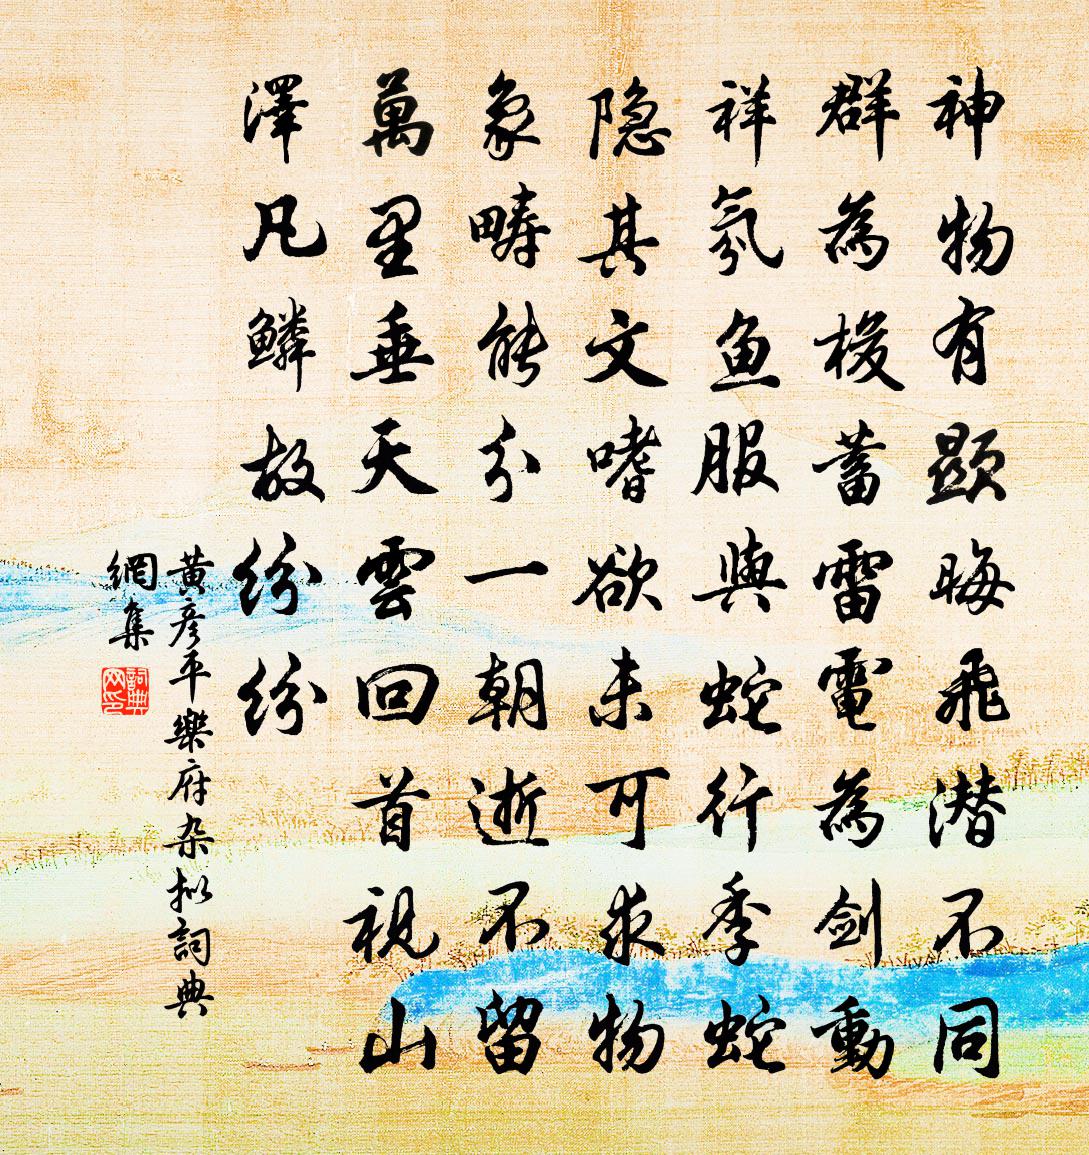 神物有顯晦飛潛不同
群為梭蓄雷電為劍動
祥氛魚服與蛇行季蛇
隱其文嗜欲未可求物
象疇能分一朝逝不留
萬里垂天雲回首視山
澤凡鱗故紛紛
黃彥平樂府雜擬詞典
網集
詞典網印